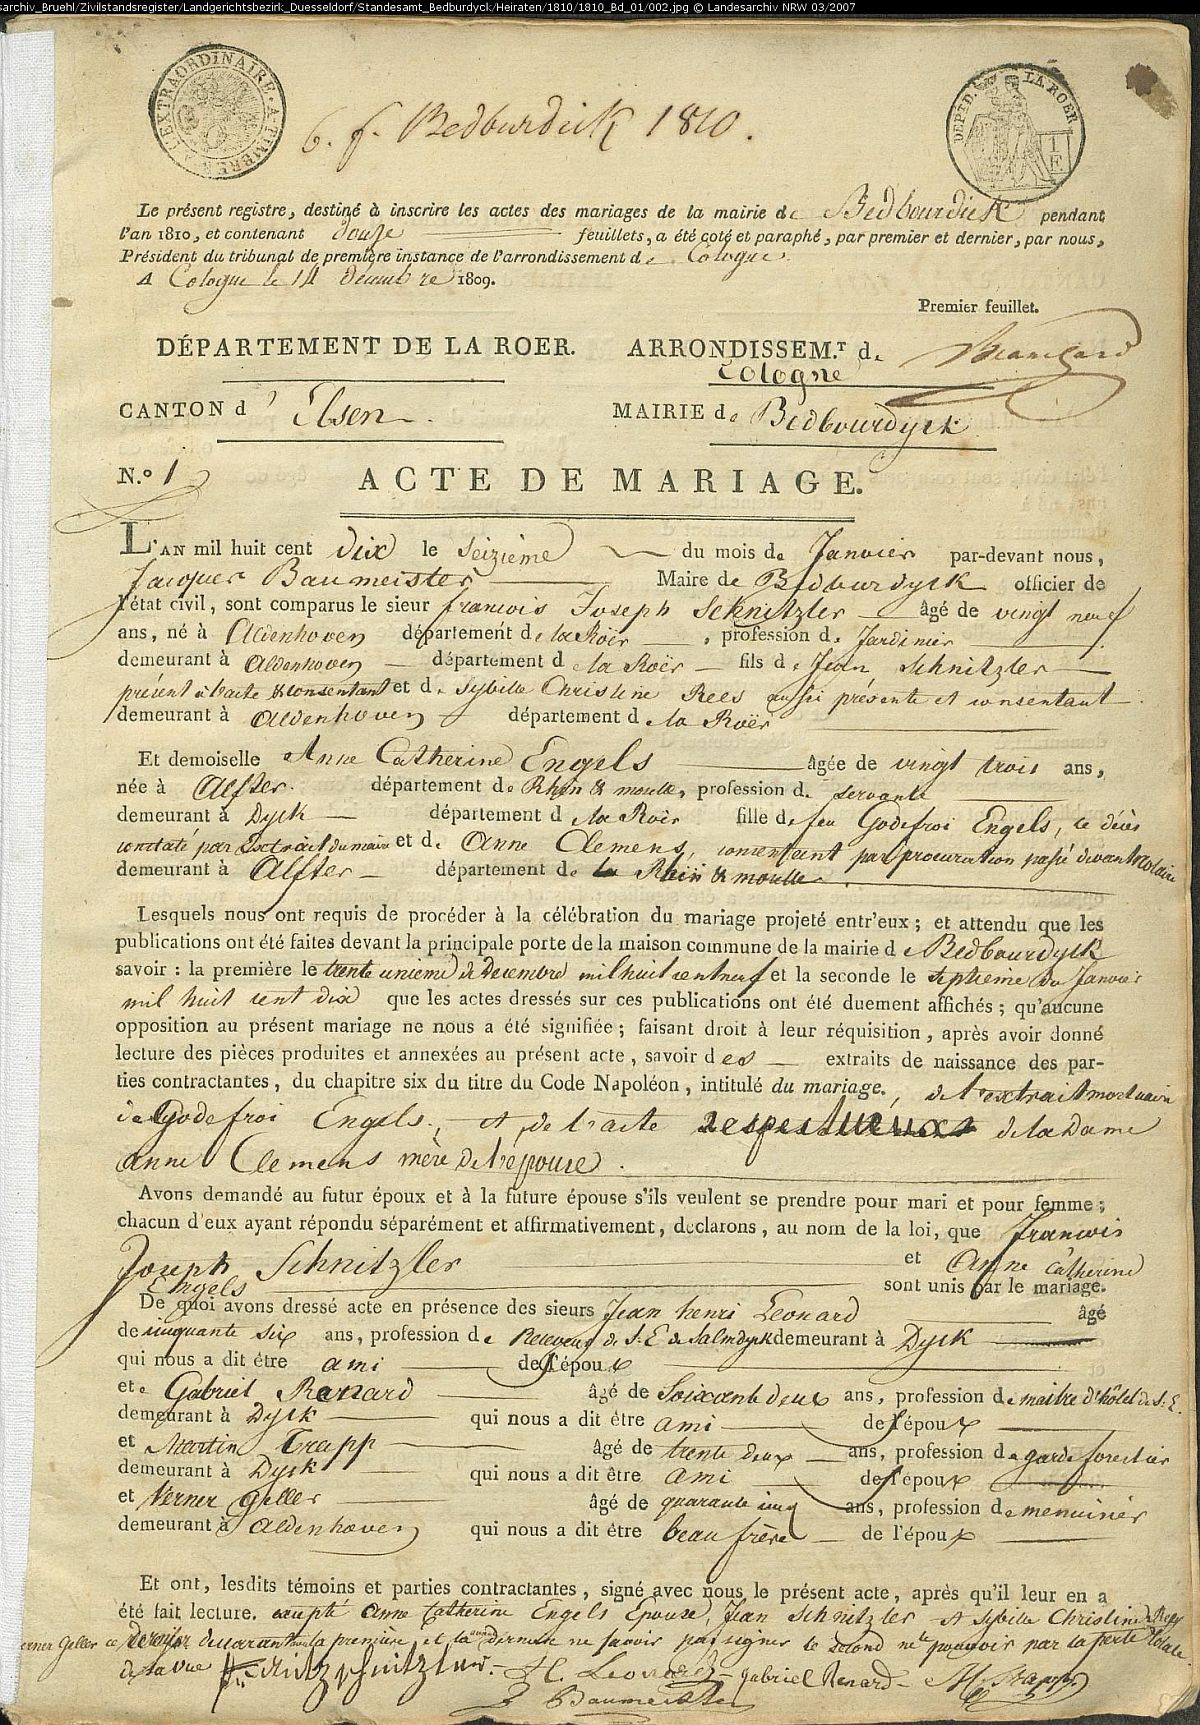 sarchiv_Bruehl/Zivilstandsregister/Landgerichtsbezirk_Duesseldorf/Standesamt_Bedburdyck/Heiraten/1810/1810_Bd_01/002.jpg © Landesarchiv NRW 03/2007
EXTRAORDINAIRE. A TIMBRER A L'
DEPT.D. LA ROER
1 E
6. f. Bedburdick 1810.
Le présent registre, destiné à inscrire les actes des mariages de la mairie de Bedbourdick pendant
l'an 1810, et contenant douze feuillets, a été coté et paraphé, par premier et dernier, par nous,
Président du tribunal de première instance de l'arrondissement de Cologne.
A Cologne le 14 décembre 1809.
Premier feuillet.
DÉPARTEMENT DE LA ROER. ARRONDISSEM.T de
Cologne
CANTON d'Elsen. MAIRIE de Bedbourdyck
N.º 1 ACTE DE MARIAGE.
L'AN mil huit cent dix le Seizième du mois de Janvier par-devant nous,
Jacques Baumeister Maire de Bedburdyck officier de
l'état civil, sont comparus le sieur francois Joseph Schnitzler âgé de vingt neuf
ans, né à Aldenhoven département de la Roër, profession de Jardinier
demeurant à Aldenhoven département de la Roër fils de Jean Schnitzler
présent à l'acte & consentant et de Sybille Christine Rees aussi présente et consentant
demeurant à Aldenhoven département de la Roër
Et demoiselle Anne Catherine Engels âgée de vingt trois ans,
née à Alfter. département de Rhin & moselle, profession de servante
demeurant à Dyck département de la Roër fille de feu Godefroi Engels, ce décès
constaté par Extrait du maire et de Anne Clemens, consentant par procuration passé devant Notaire
demeurant à Alfter département de Rhin & moselle.
Lesquels nous ont requis de procéder à la célébration du mariage projeté entr'eux ; et attendu que les
publications ont été faites devant la principale porte de la maison commune de la mairie de Bedbourdyck
savoir : la première le trente unieme de Decembre mil huit cent neuf et la seconde le septieme du Janvier
mil huit cent dix que les actes dressés sur ces publications ont été duement affichés ; qu'aucune
opposition au présent mariage ne nous a été signifiée ; faisant droit à leur réquisition, après avoir donné
lecture des pièces produites et annexées au présent acte, savoir des extraits de naissance des par-
ties contractantes, du chapitre six du titre du Code Napoléon, intitulé du mariage, de l'extrait mortuaire
de Godefroi Engels, et de l'acte respectueux de la Dame
anne Clemens mère de l'épouse.
Avons demandé au futur époux et à la future épouse s'ils veulent se prendre pour mari et pour femme ;
chacun d'eux ayant répondu séparément et affirmativement, declarons, au nom de la loi, que francois
Joseph Schnitzler et Anne Catherine
Engels sont unis par le mariage.
De quoi avons dressé acte en présence des sieurs Jean henri Leonard âgé
de cinquante six ans, profession de Receveur de S. E. de Salmdyck demeurant à Dyck
qui nous a dit être ami de l'époux
et de Gabriel Renard âgé de Soixante deux ans, profession de maitre d'hôtel de S. E.
demeurant à Dyck qui nous a dit être ami de l'époux
et Martin Trapp âgé de trente deux ans, profession de garde forestier
demeurant à Dyck qui nous a dit être ami de l'époux
et Verner Geller âgé de quarante cinq ans, profession de menuisier
demeurant à Aldenhoven qui nous a dit être beau frère de l'époux
Et ont, lesdits témoins et parties contractantes, signé avec nous le présent acte, après qu'il leur en a
été fait lecture. excepté Anne Catherine Engels Epouse, Jean Schnitzler et Sybille Christine Rees
verner Geller ce dernier la première et la dernière ne savoir pas signer le second ne pouvoir par la perte totale
de sa vue schnitzler. H. Leonard gabriel Renard M. Trapp
Baumeister